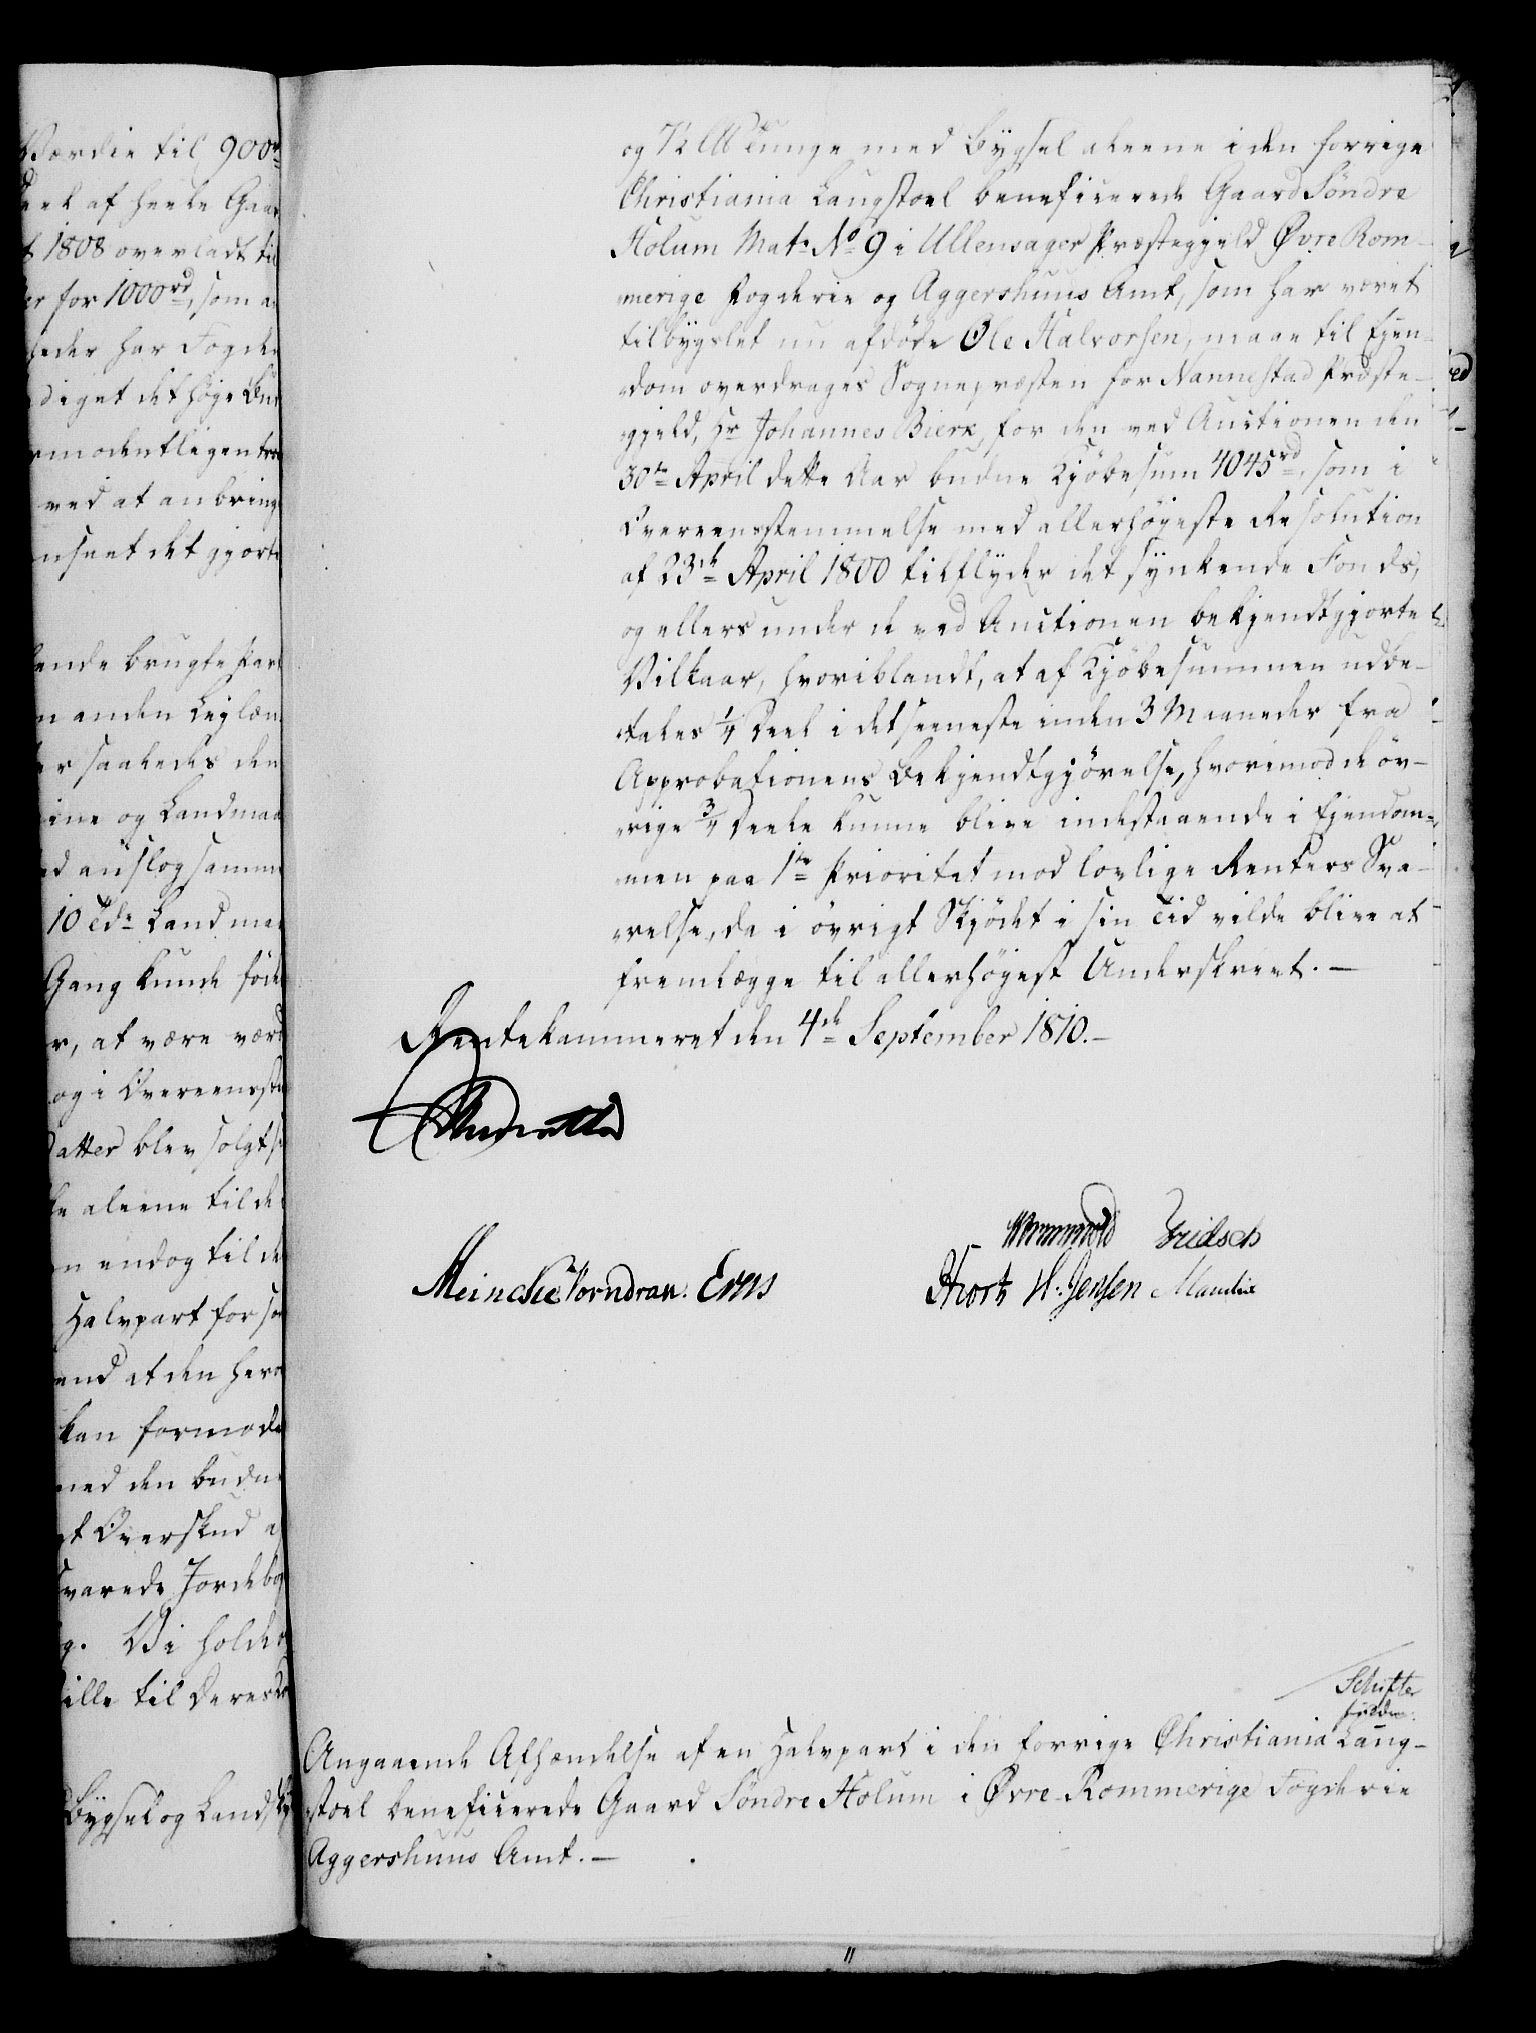 Værdie til 900rd
Deel af heele Gaar
t 1808 overladt til
er for 1000rd, som a
heder har Fogde
diget det høye
rmodentligen
ved at anbring
nseet det gjort
ende brugte Par
n anden Leylæn
er saaledes den
ine og Landmaa
ed anslog samme
10 Tdr Land
Gang kunde föde
r, at være værd
og i Overeensste
atter blev solgt
e aleene til de
n endog til de
Halvpart for so
end at den her
kan formode
med den budn
et Overskud a
svarede Jordebog
g. Vi holde
ille til Deres
Bygsel og Landsky
og ½ ℔ tunge med Bygsel aleene i den forrige
Christiania Laugstoel beneficerede Gaard Söndre
Holum Matr No 9 i Ullensager Præstegjeld Øvre Rom-
merige Fogderie og Aggershuus Amt, som har været
tilbygslet nu afdöde Ole Halvorsen, maae til Ejen-
dom overdrages Sognepræsten for Nannestad Præste-
gjeld, Hr Johannes Bierk, for den ved Auctionen den
30te April dette Aar budne Kjöbesum 4045rd, som i
Overeensstemmelse med allerhöjeste Resolution
af 23de April 1800 tilflyder det synkende Fonds,
og ellers under de ved Auctionen bekjendtgjorte
Vilkaar, hvoriblandt, at af Kjöbesummen udbe-
tales ¼ Deel i det seeneste inden 3 Maaneder fra
Approbationens Bekjendtgjörelse, hvorimod de öv-
rige ¾ Deele kunne blive indestaaende i Ejendom-
men paa 1te Prioritet mod lovlige Renters Sva-
relse, da i övrigt Skjödet i sin Tid vilde blive at
fremlægge til allerhöjest Underskrivt. —
Rentekammeret den 4de September 1810. —
Wormskiold Fridsch
Meincke Vorndran. Erns Hiort H. Jensen Manthe
Schifter
Angaaende Afhændelse af en Halvpart i den forrige Christiania Laug-
stoel beneficerede Gaard Söndre Holum i Øvre Rommerige Fogderie
Aggershuus Amt. —